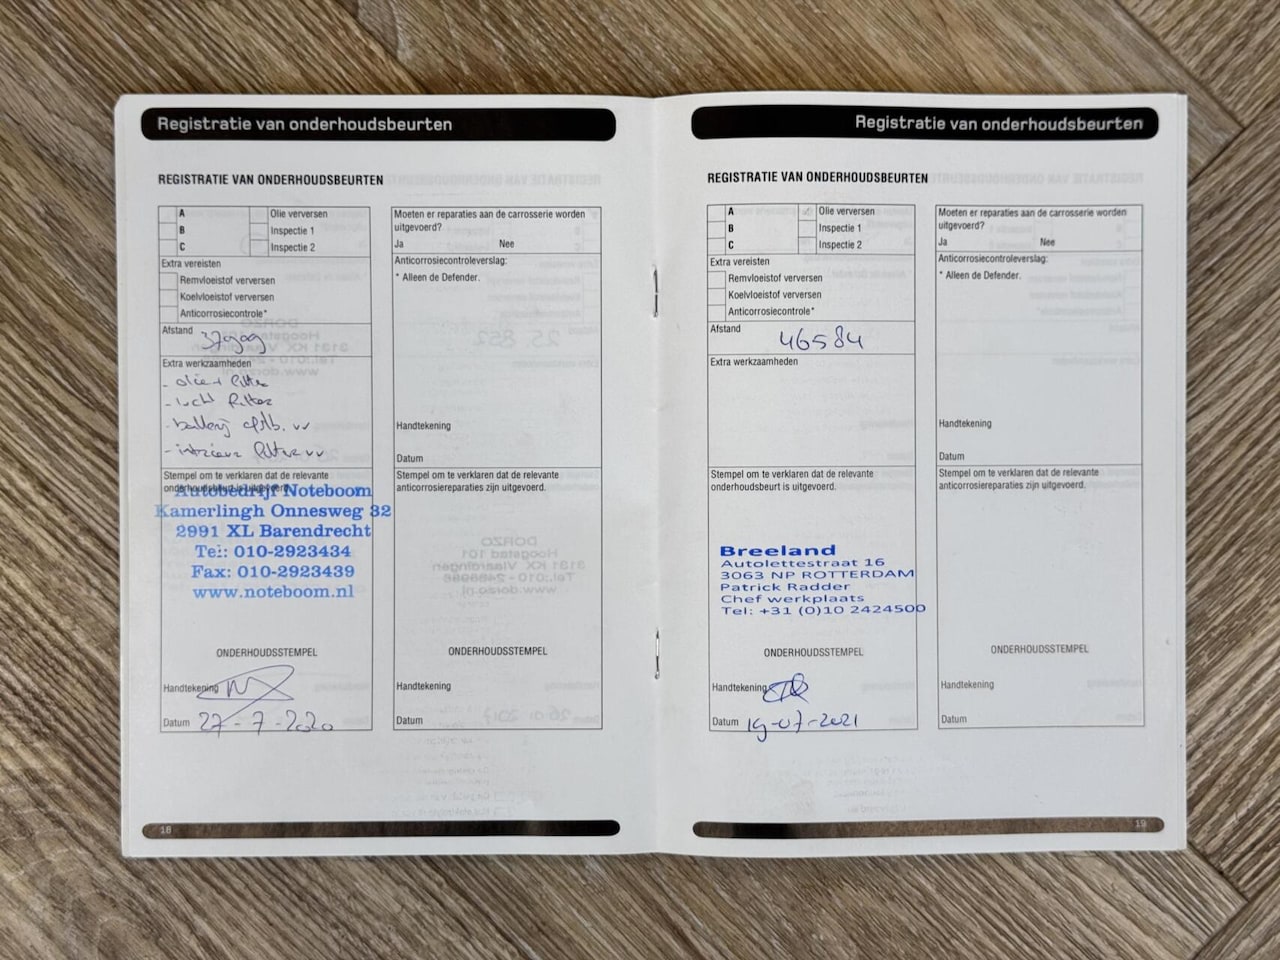 Registratie van onderhoudsbeurten
REGISTRATIE VAN ONDERHOUDSBEURTEN
A
Olie verversen
B
Inspectie 1
C
Inspectie 2
Extra vereisten
Remvloeistof verversen
Koelvloeistof verversen
Anticorrosiecontrole*
Afstand
Extra werkzaamheden
- lucht filter
- battery
- interieur filter vv
Stempel om te verklaren dat de relevante
onderhoudsbeurt is uitgevoerd.
Autobedrijf Noteboom
Kamerlingh Onnesweg 32
2991 XL Barendrecht
Tel: 010-2923434
Fax: 010-2923439
www.noteboom.nl
ONDERHOUDSSTEMPEL
Handtekening
Datum 27-7-2020
Moeten er reparaties aan de carrosserie worden
uitgevoerd?
Ja Nee
Anticorrosiecontroleverslag:
* Alleen de Defender.
Handtekening
Datum
Stempel om te verklaren dat de relevante
anticorrosiereparaties zijn uitgevoerd.
ONDERHOUDSSTEMPEL
Handtekening
Datum
18
Registratie van onderhoudsbeurten
REGISTRATIE VAN ONDERHOUDSBEURTEN
A
Olie verversen
B
Inspectie 1
C
Inspectie 2
Extra vereisten
Remvloeistof verversen
Koelvloeistof verversen
Anticorrosiecontrole*
Afstand 46584
Extra werkzaamheden
Stempel om te verklaren dat de relevante
onderhoudsbeurt is uitgevoerd.
Breeland
Autolettestraat 16
3063 NP ROTTERDAM
Patrick Radder
Chef werkplaats
Tel: +31 (0)10 2424500
ONDERHOUDSSTEMPEL
Handtekening
Datum 19-07-2021
Moeten er reparaties aan de carrosserie worden
uitgevoerd?
Ja Nee
Anticorrosiecontroleverslag:
* Alleen de Defender.
Handtekening
Datum
Stempel om te verklaren dat de relevante
anticorrosiereparaties zijn uitgevoerd.
ONDERHOUDSSTEMPEL
Handtekening
Datum
19